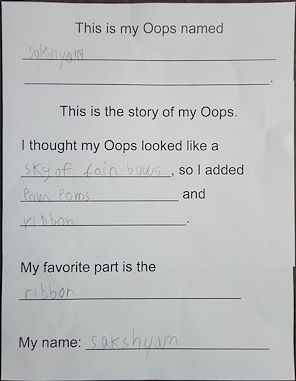 This is my Oops named
sakshyam
.
This is the story of my Oops.
I thought my Oops looked like a
sky of rain bows, so I added
Pom Poms and
ribbon.
My favorite part is the
ribbon
My name: sakshyam